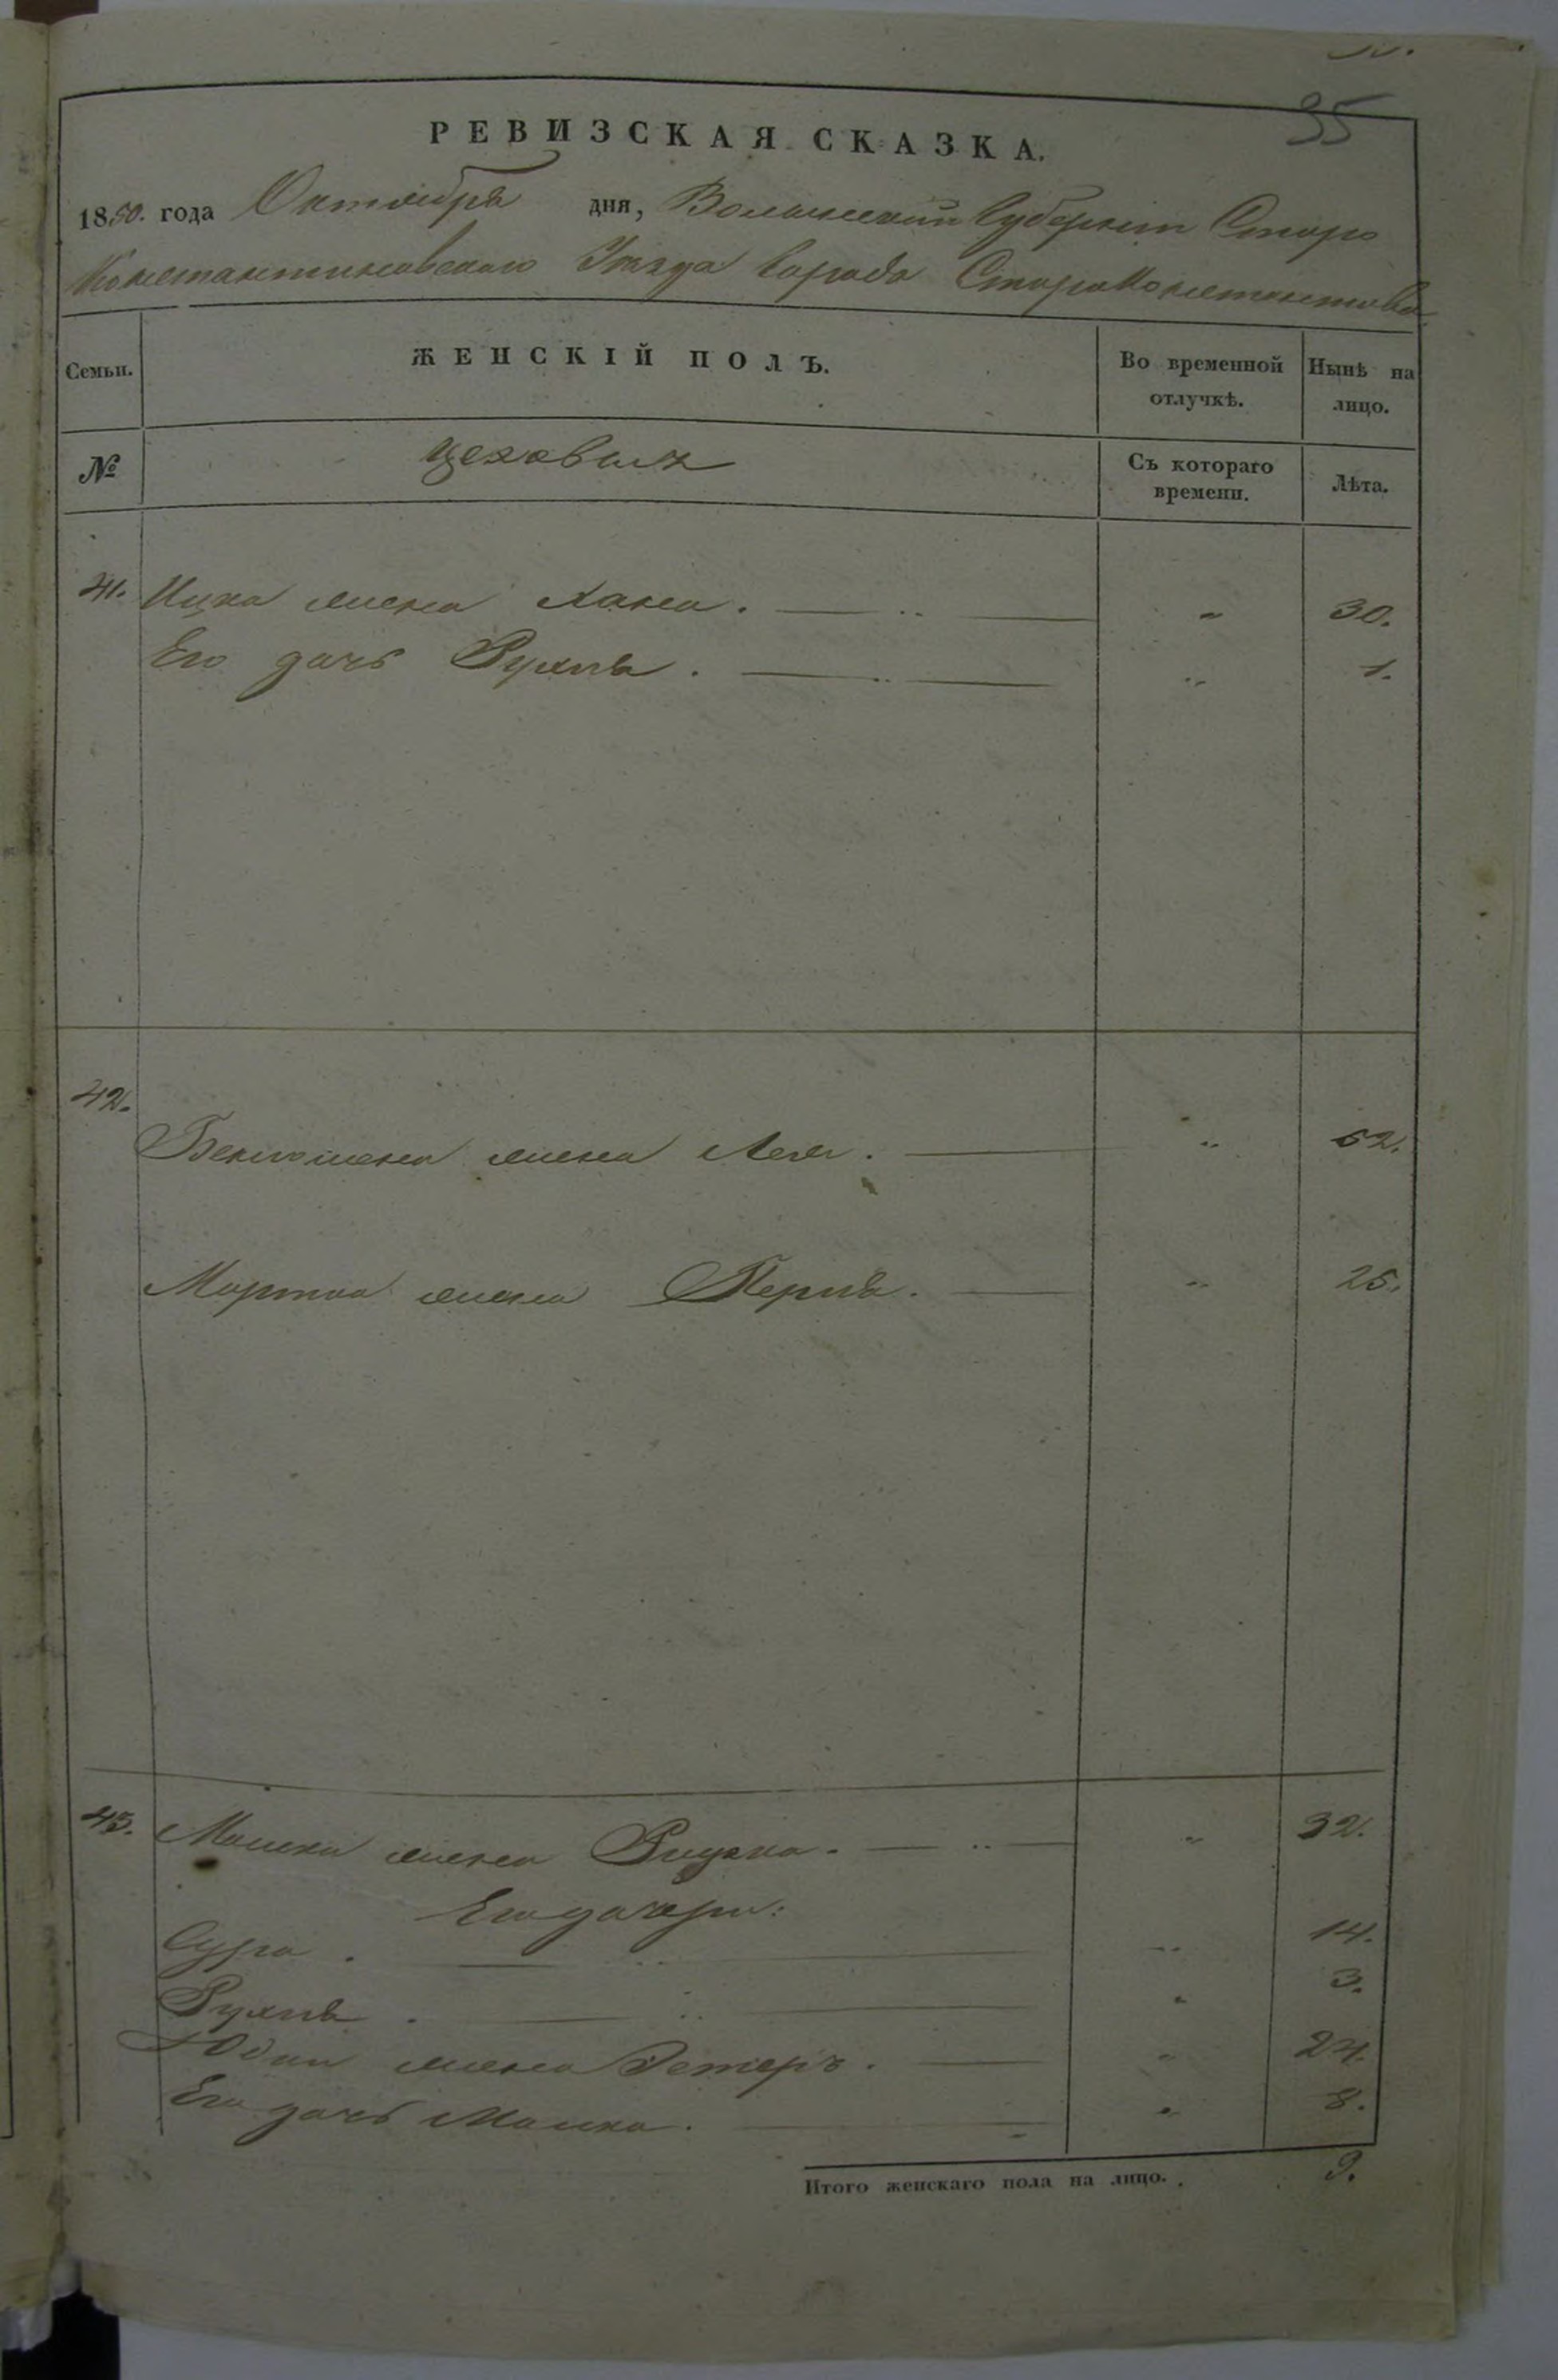 35
РЕВИЗСКАЯ СКАЗКА.
1850. года Октября дня, Волынской Губерніи Старо
Константиновскаго Уезда Города Староконстантинова
Семьи. ЖЕНСКІЙ ПОЛЪ. Во временной отлучкѣ. Нынѣ на лицо.
№ цеховыхъ Съ котораго времени. Лѣта.
41. Ицка жена Хана. " 30.
Его дочь Рухля. " 1.
42.
Беньюмена жена Лея. " 52.
Мортка жена Перля. " 25.
43. Мошка жена Ривка. " 32.
Его дочери:
Сура. " 14.
Рухля. " 3.
жена Эстеръ. " 24.
Его дочь " 8.
Итого женскаго пола на лицо. 9.